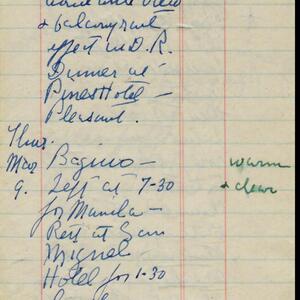 view
+ balcony and
effect in D.R.
Dinner at
Pines Hotel –
Pleasant.
Thur.
Mar Baguio – warm
9. Left at 7-30 + clear
for Manila –
Rest at San
Miguel
Hotel for 1-30